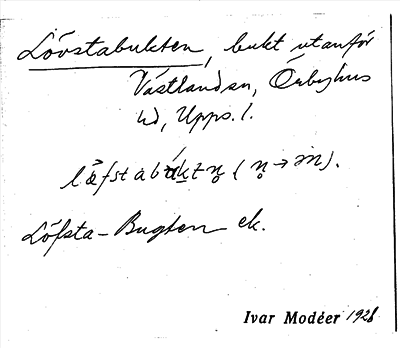 Lövstabukten, bukt utanför
Västlandsn, Örbyhus
hd, Upps. l.
Löfsta-Bugten ek.
Ivar Modéer 1928